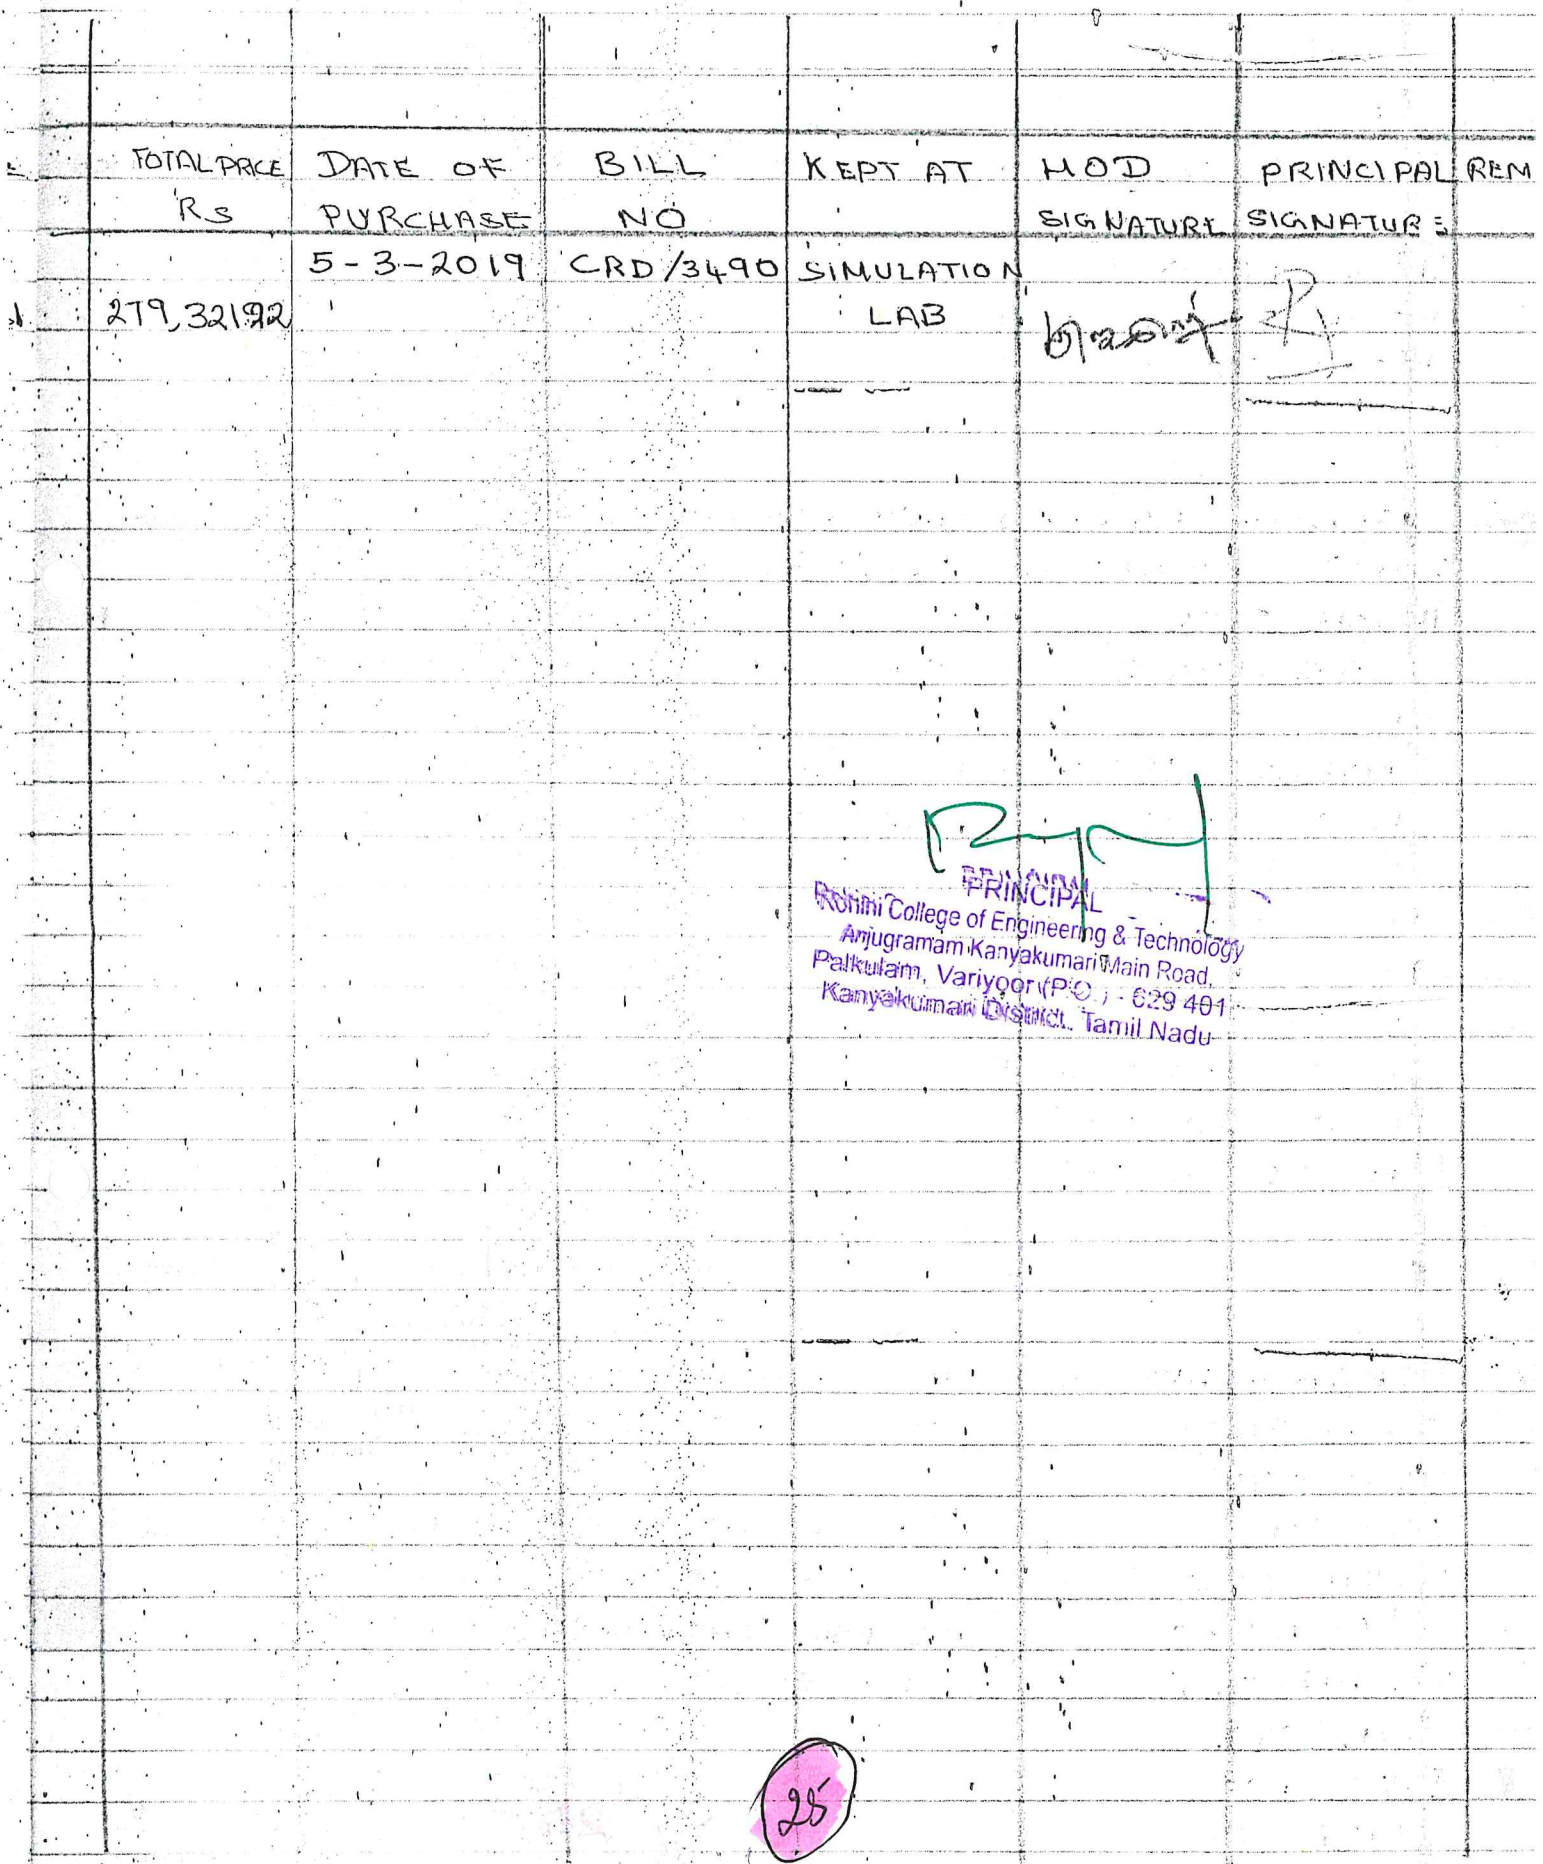 TOTAL PRICE DATE OF BILL KEPT AT HOD PRINCIPAL REM
Rs PURCHASE NO SIGNATURE SIGNATURE
5-3-2019 CRD/3490 SIMULATION
LAB
PRINCIPAL
Rohini College of Engineering & Technology
Anjugramam Kanyakumari Main Road,
Palkulam, Variyoor (P.O.) - 629 401
Kanyakumari District. Tamil Nadu
25